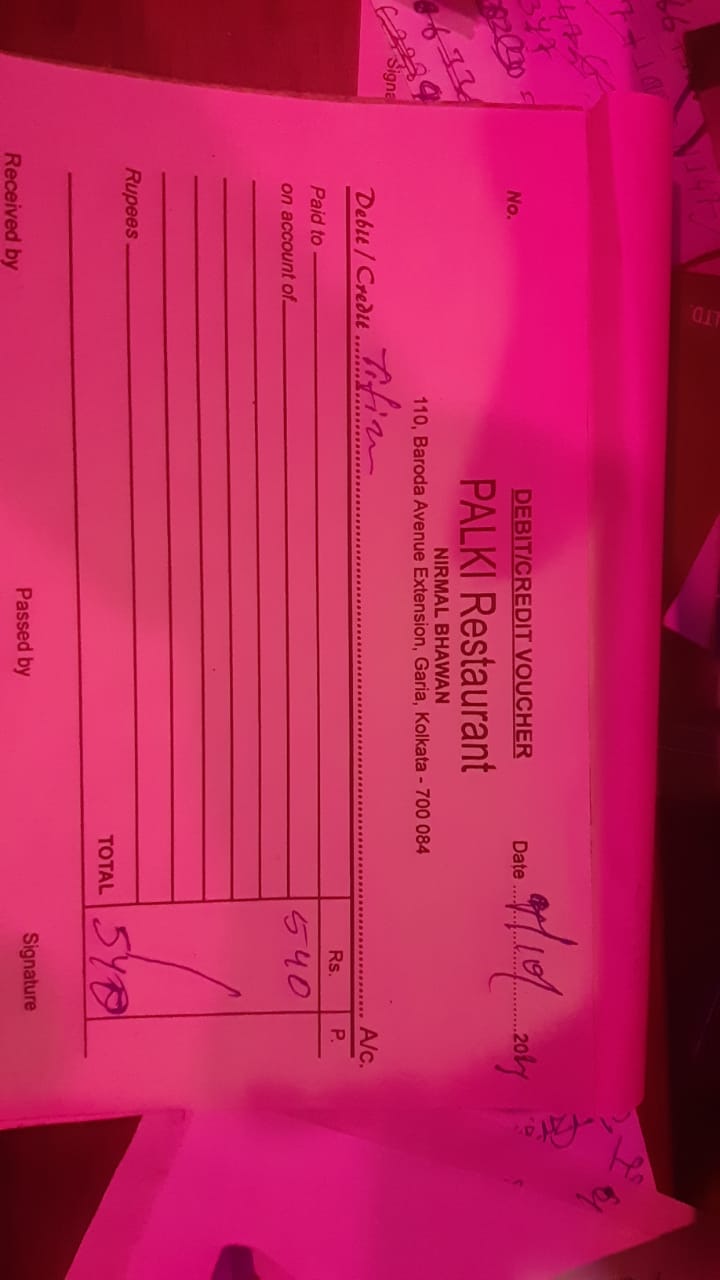 DEBIT/CREDIT VOUCHER
No.
Date
PALKI Restaurant
NIRMAL BHAWAN
110, Baroda Avenue Extension, Garia, Kolkata - 700 084
Debit / Credit Tifin A/c.
Rs. P.
Paid to
on account of 540
Rupees
TOTAL 540
Received by Passed by Signature
LTD.